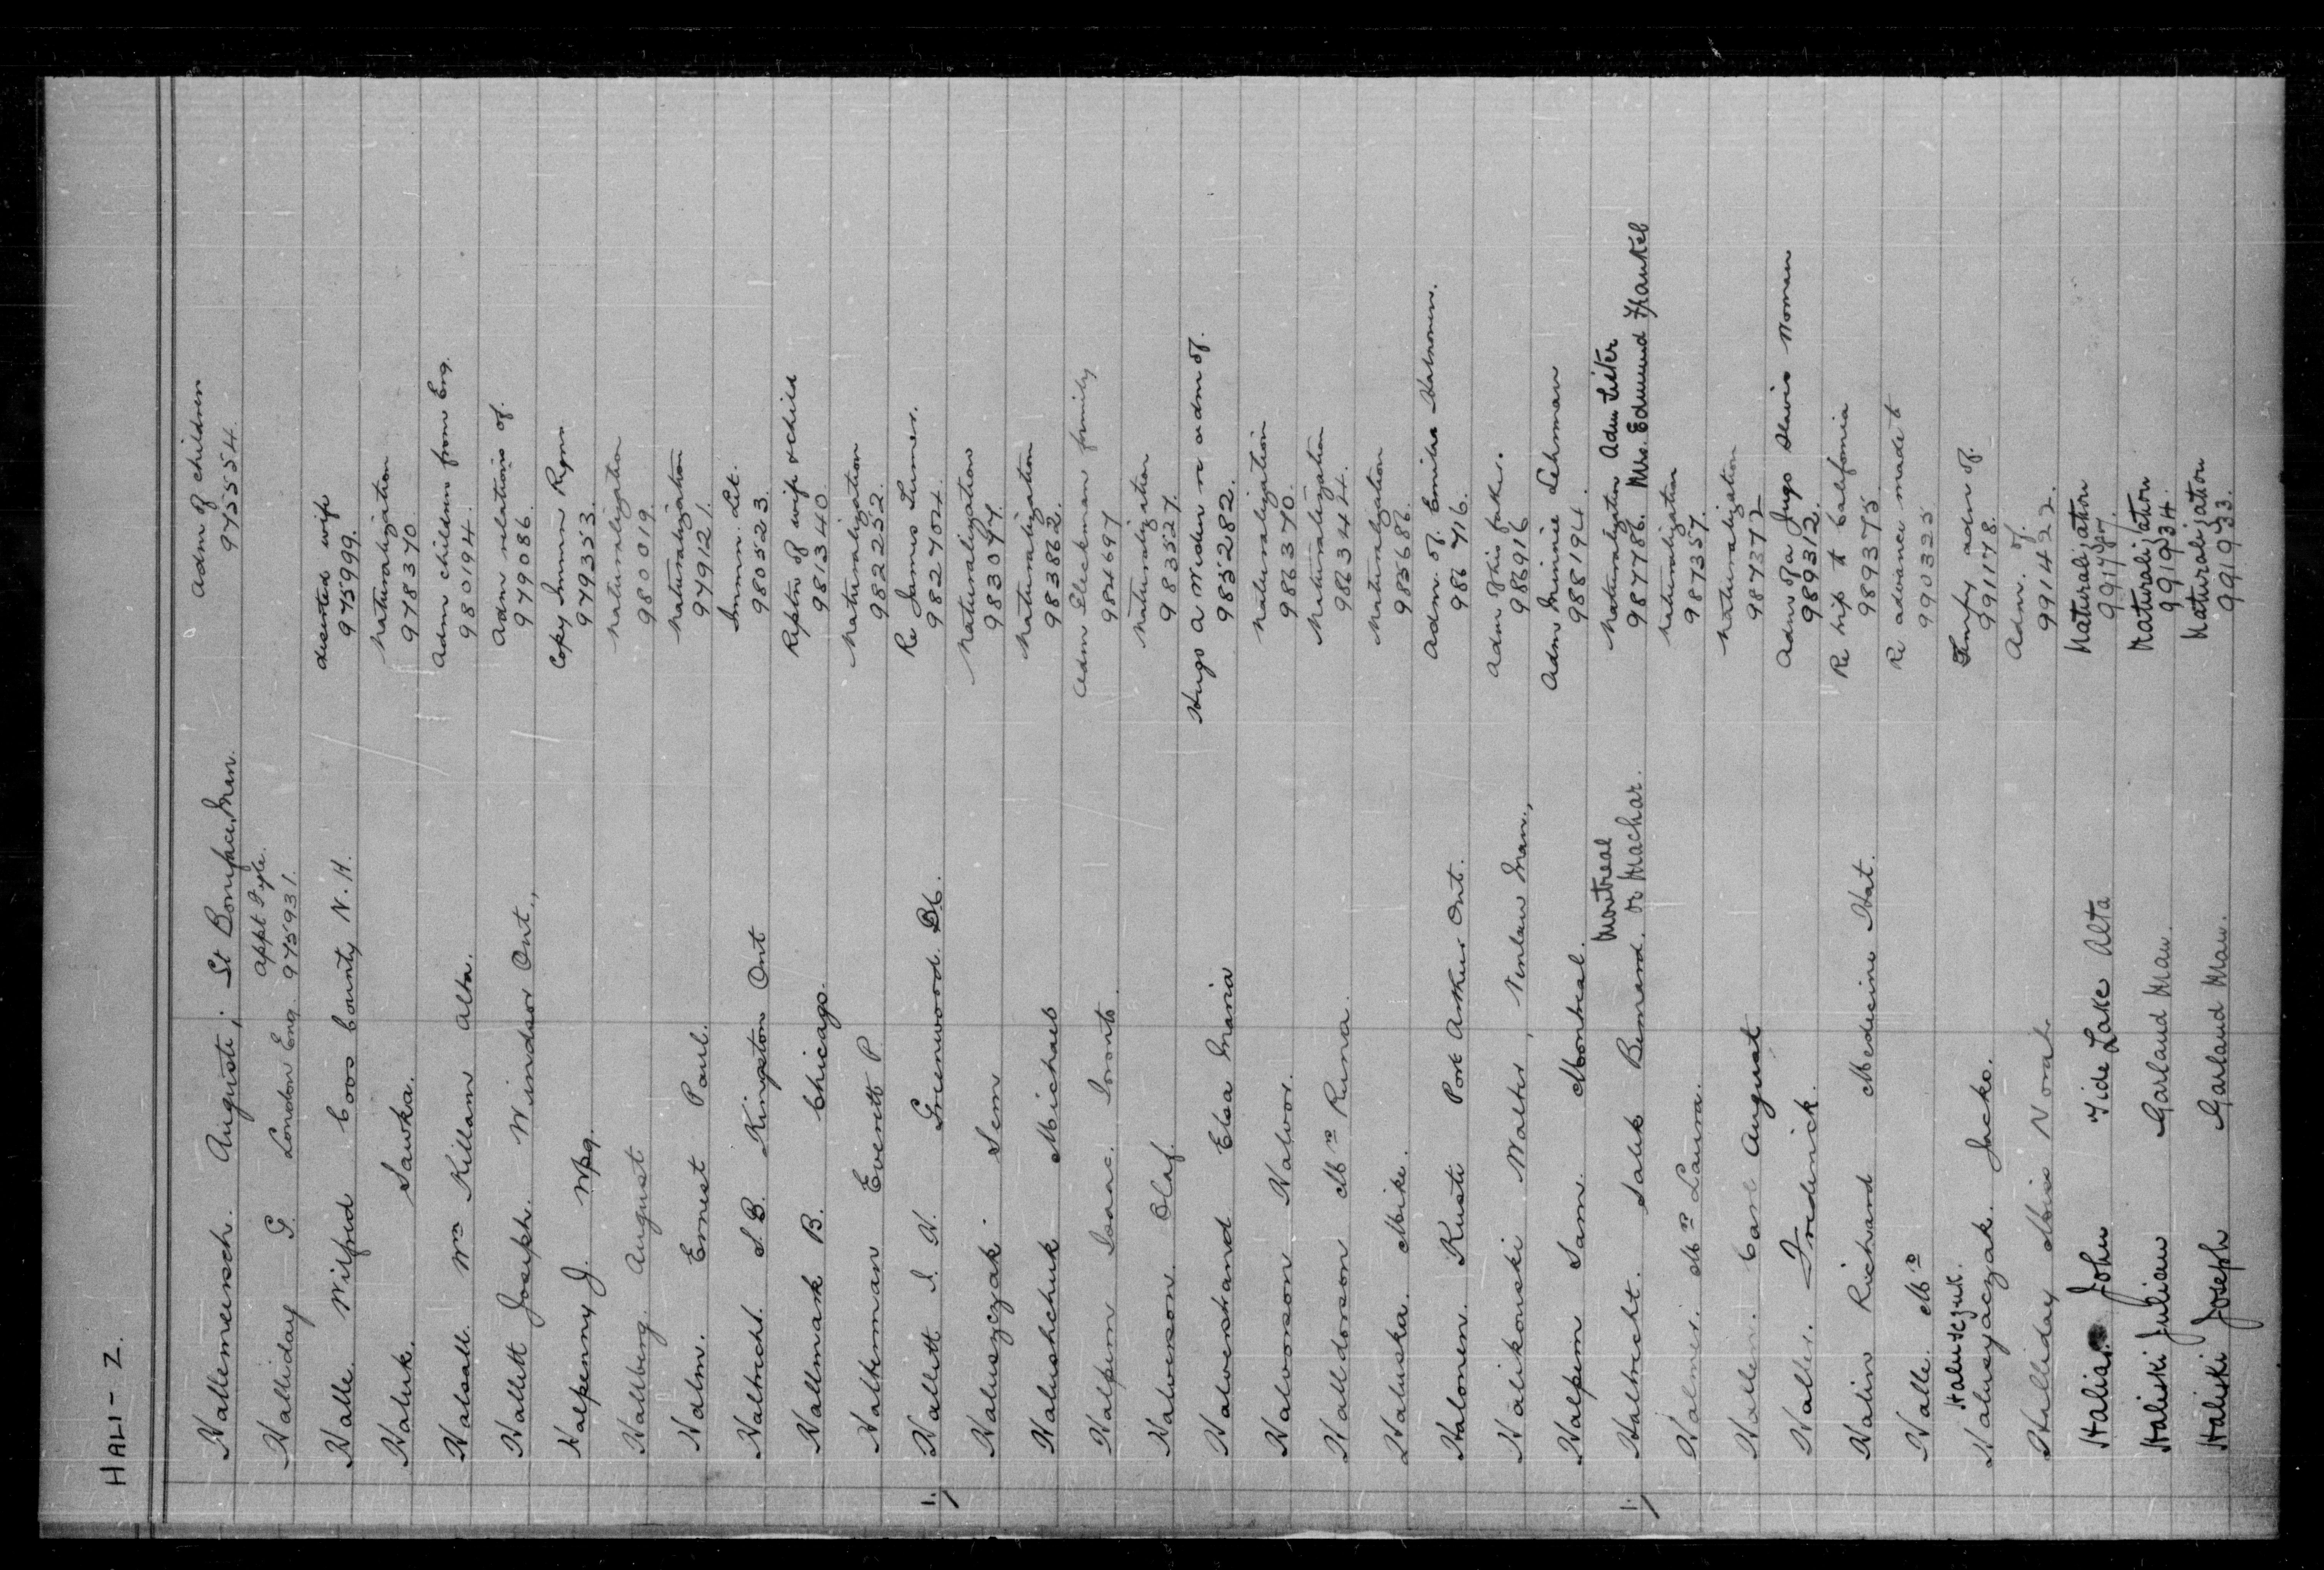 HALI - Z.
Adm of children
Hallemeersch. Auguste; St Boniface Man. 975554.
Appt Pyle.
Halliday G. London Eng. 975931.
deserted wife
Halle. Wilfred Coos County N.H. 975999.
Naturalization
Haluk. Sawka. 978370
Adm children from Eng.
Halsall. Wm Killam Alta. 980194.
Adm relations of.
Hallett Joseph. Windsor Ont., 979086.
Copy Immn Regns
Halpenny J. Wpg. 979353.
Naturalization
Hallberg. August 980019.
Naturalization
Halm. Ernest Paul. 979121.
Immn. Lit.
Haltricht. S.B. Kingston Ont 980523.
Reptn of wife & child
Hallmark B. Chicago. 981340.
Naturalization
Halterman Everett P. 982252.
Re James Turner.
1. Hallett I. H. Greenwood. BC. 982704.
Naturalization
Haluszczak. Sem 983094.
Naturalization
Halushchuk Michael 983862.
Adm Gleckman family
Halpern Isaac. Toronto. 984697
Naturalization
Halverson. Olaf. 983527.
Hugo A Widen re adm of.
Halverstrand Elsa Maria 985282.
Naturalization
Halvorson Halvor. 986370.
Naturalization
Halldorson Mrs Runa. 986344.
Naturalization
Haluska. Mike. 985686.
Adm. of. Emilia Halronen.
Halonen. Kusti Port Arthur Ont. 986716.
Adm of his father.
Halikowski Walter, Man., 986916
Adm Minnie Lehman
Halpern Sam. Montreal. 988194.
Montreal Naturalization Adm Sister
1. Halbrecht. Salik Bernard. or Machar. 987786. Mrs. Edmund Frankel
Naturalization
Halmer. Mrs Laura. 987357.
Naturalization
Haller. Carl August 987372
Adm of a Jugo Slavia Woman
Haller. Frederick. 989312.
Re trip to California
Halin Richard Medicine Hat. 989375
Re advance made to
Halle. Mrs 990325
Haluscejuk. Empy adm of.
Haluszaczak. Jacko. 991178.
Adm. of.
Halliday Miss Norah. 991422.
Naturalization
Halias John Tide Lake Alta
Naturalization
Haliski Julian Garland Man. 991934.
Naturalization
Haliski Joseph Garland Man. 991933.